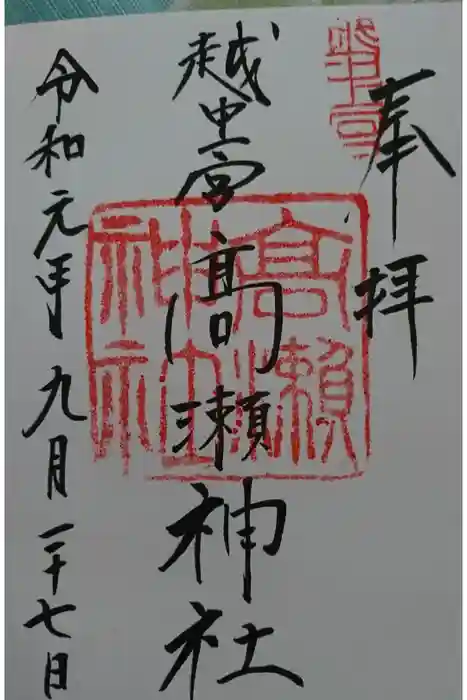 奉拝
越中一宮髙瀬神社
高瀬
神社
令和元年九月二十七日